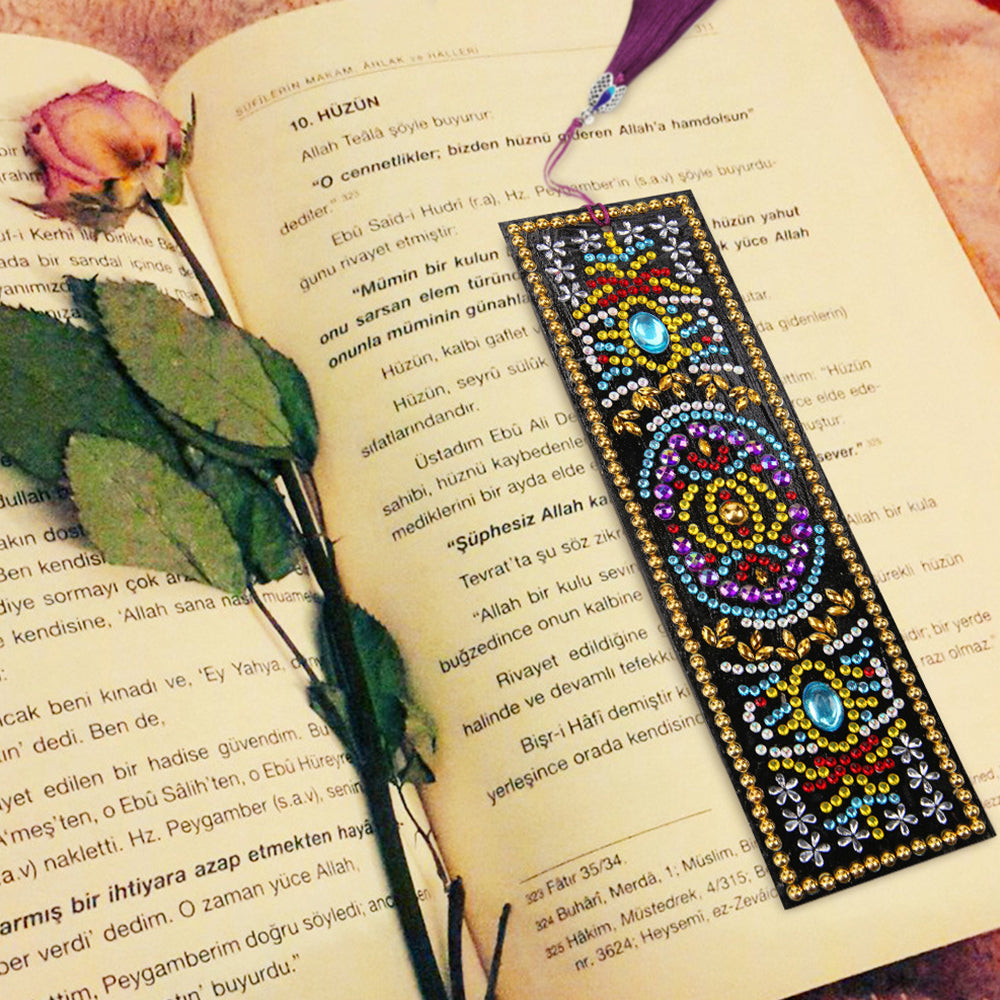 SÛFÎLERİN MAKAM, ÂHLAK ve HALLERİ
311
10. HÜZÜN
Allah Teâlâ şöyle buyurur:
"O cennetlikler; bizden hüznü gideren Allah'a hamdolsun"
dediler." 323
Ebû Said-i Hudrî (r.a), Hz. Peygamber'in (s.a.v) şöyle buyurdu-
ğunu rivayet etmiştir:
"Mümin bir kulun hüzün yahut
onu sarsan elem türünd k yüce Allah
onunla müminin günahla
Hüzün, kalbi gaflet v da gidenlerin)
Hüzün, seyrü sülûk
sıfatlarındandır.
Üstadım Ebû Ali De ittim: "Hüzün
sahibi, hüznü kaybedenle rce elde ede-
mediklerini bir ayda elde muştur:
"Şüphesiz Allah ka sever." 325
Tevrat'ta şu söz zikr
"Allah bir kulu sevi Allah bir kula
buğzedince onun kalbine ürekli hüzün
Rivayet edildiğine
halinde ve devamlı tefekkü bir yerde
Bişr-i Hâfî demiştir ki razı olmaz."
yerleşince orada kendisind
323 Fâtır 35/34.
324 Buhârî, Merdâ, 1; Müslim, Bi
325 Hâkim, Müstedrek, 4/315; B
nr. 3624; Heysemî, ez-Zevâid
uf-i Kerhî ile birlikte Ba
ada bir sandal içinde de
yanımızd
dullah b
akın dost
Ben kendisi
diye sormayı çok arz
e kendisine, 'Allah sana nasıl muamele
cak beni kınadı ve, 'Ey Yahya,
ın' dedi. Ben de,
yet edilen bir hadise güvendim. Bu
A'meş'ten, o Ebû Sâlih'ten, o Ebû Hüreyre
.a.v) nakletti. Hz. Peygamber (s.a.v), senin
armış bir ihtiyara azap etmekten hayâ
ber verdi' dedim. O zaman yüce Allah,
ttim, Peygamberim doğru söyledi; and
tin' buyurdu."